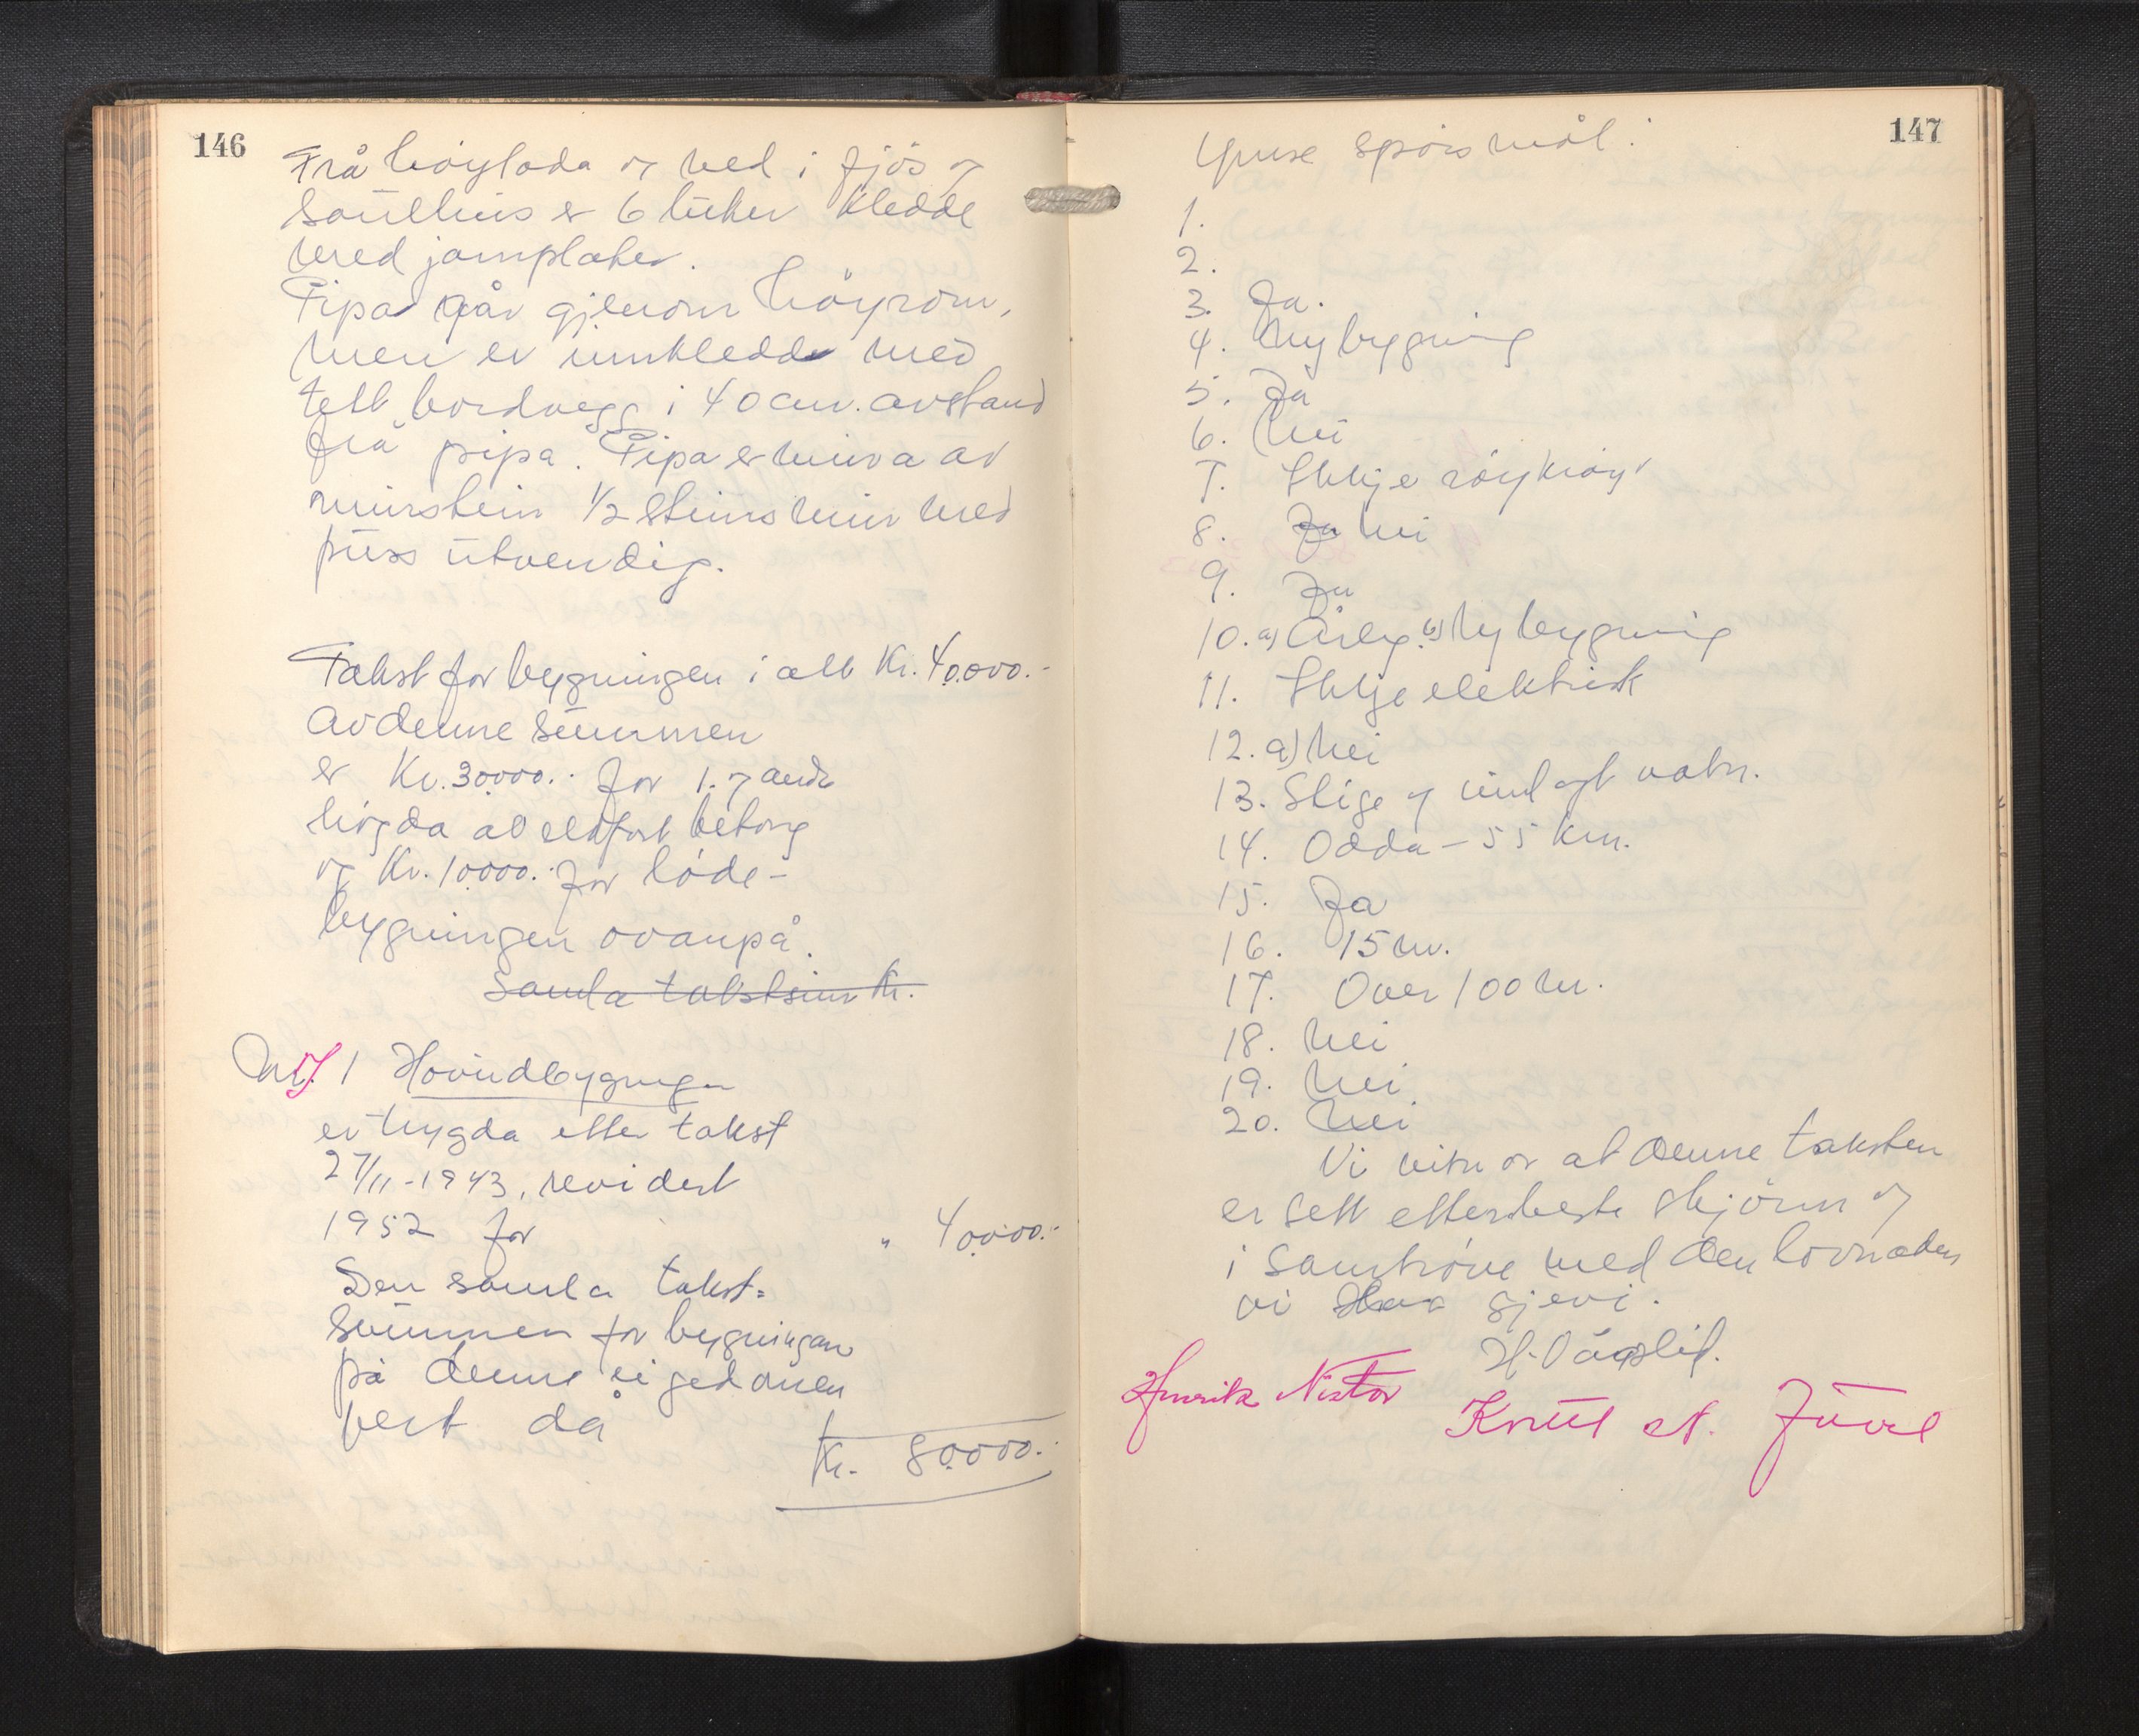 146
Frå høyloda og ned i fjøs og
sauehus er 6 luker kledde
med jarnplater.
Pipa går gjenom høyrom,
men er innkledde med
tett bordvegg i 40 cm. avstand
frå pipa. Pipa er mura av
murstein 1/2 steins mur med
puss utvendig.
Takst for bygningen i alt Kr. 40.000.-
av denne summen
er Kr. 30.000.- for 1. og andre
høgda av eldfast betong
og Kr. 10.000.- for løde-
bygningen ovanpå.
Samla takstsum Kr.
Nr. 1 Hovudbygningen
er trygda etter takst
27/11-1943, revidert
1952 for " 40.000.-
Den samla takst=
summen for bygningane
på denne eigedomen
vert då
Kr. 80.000.-
147
Ymse spörsmål:
1.
2.
3. Ja.
4. Nybygning
5. Ja
6. Nei
7. Ikkje röykröyr
8. Ja Nei
9. Ja
10. a) Årleg. b) Ny bygning
11. Ikkje elektrisk
12. a) Nei
13. Stige og innlagt vatn.
14. Odda – 55 km.
15. Ja
16. 15 m.
17. Over 100 m.
18. Nei
19. Nei
20. Nei
Vi vitnar at denne taksten
er sett etter beste skjönn og
i samhöve med den lovnaden
vi har gjevi.
Henrik Nistov
Knut Juvel